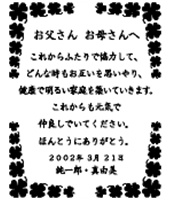 お父さん お母さんへ
これからふたりで協力して、
どんな時もお互いを思いやり、
健康で明るい家庭を築いていきます。
これからも元気で
仲良しでいてください。
ほんとうにありがとう。
2002年3月21日
純一郎・真由美